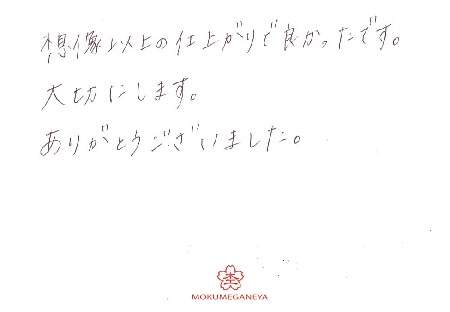 想像以上の仕上がりで良かったです。
大切にします。
ありがとうございました。
MOKUMEGANEYA